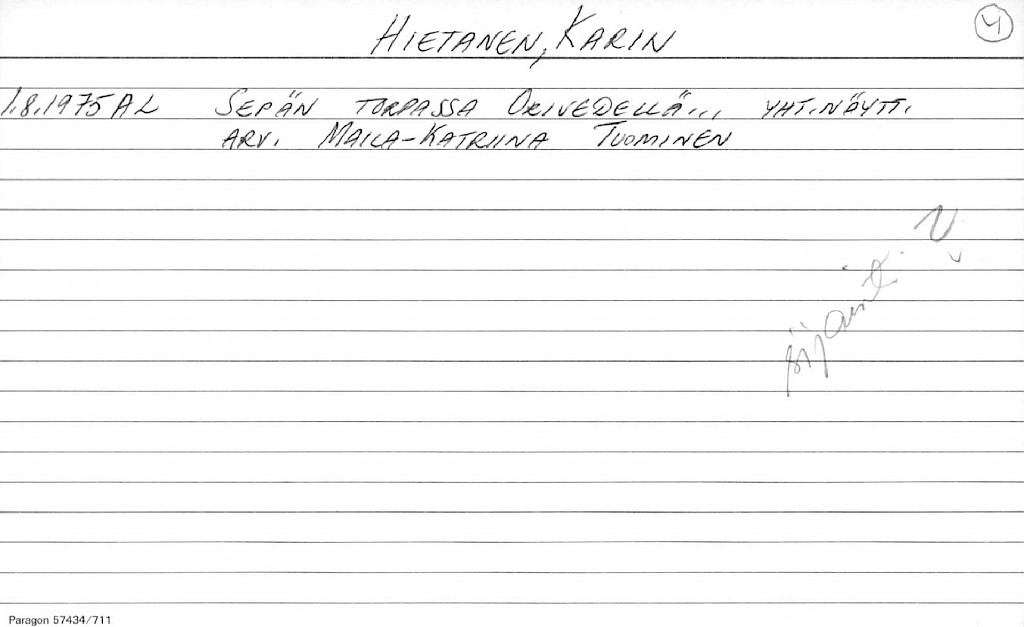 4
HIETANEN, KARIN
1.8.1975 AL SEPÄN TORPASSA ORIVEDELLÄ... YHT.NÄYTT.
ARV. MAILA-KATRIINA TUOMINEN
sijainti
Paragon 57434/711